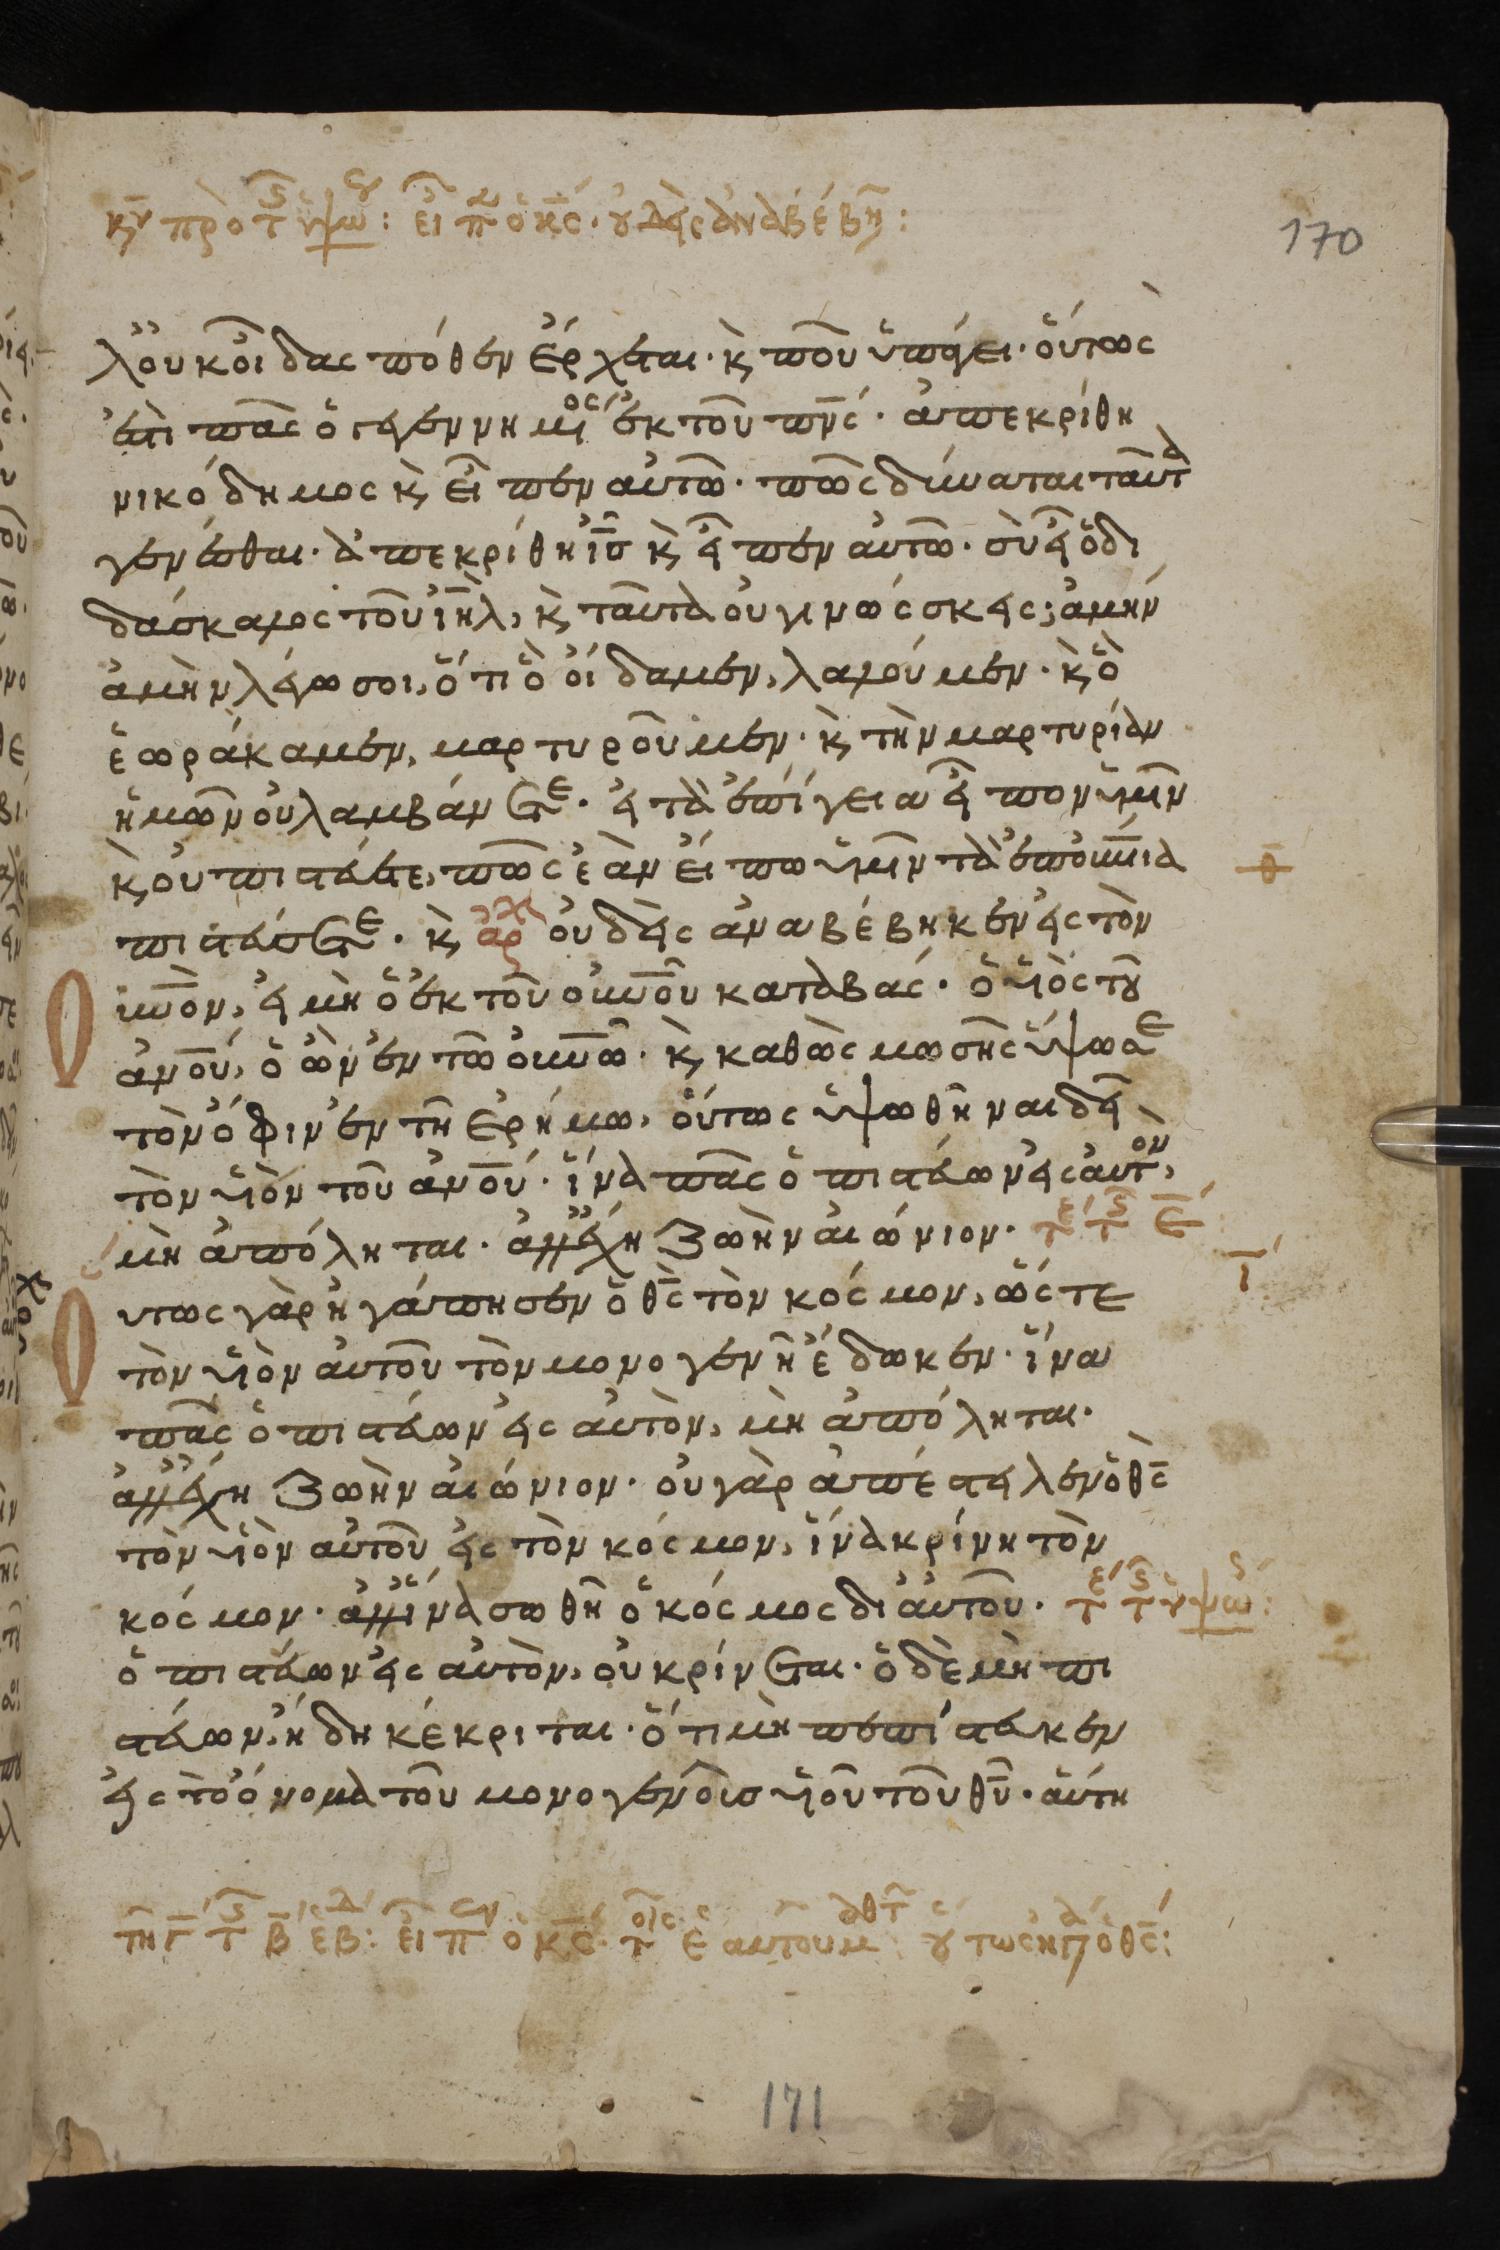 κυ πρὸ τ ὑψώ: εἶπ ὁ κς· οὐδεὶς ἀναβέβη:
170
λ' οὐκ οἶδας πόθεν ἔρχεται· κ ποῦ ὑπάγει· οὕτως
ἐστὶ πᾶς ὁ γεγεννημένος ἐκ τοῦ πνς· ἀπεκρίθη
νικόδημος κ εἶπεν αὐτῶ· πῶς δύναται ταῦτα
γενέσθαι· ἀπεκρίθη ις κ εἶπεν αὐτῶ· σὺ εἶ ὁ δι
δάσκαλος τοῦ ιηλ, κ ταῦτα οὐ γινώσκεις; ἀμὴν
ἀμὴν λέγω σοι, ὅτι ὃ οἴδαμεν, λαλοῦμεν· κ ὃ
ἑωράκαμεν, μαρτυροῦμεν· κ τὴν μαρτυρίαν
ἡμῶν οὐ λαμβάνετε· εἰ τὰ ἐπίγεια εἶπον ὑμῖν
κ οὐ πιστεύετε, πῶς ἐὰν εἴπω ὑμῖν τὰ ἐπουνια
θ
πιστεύσετε· κ αρχ οὐδεὶς ἀναβέβηκεν εἰς τὸν
ουνον, εἰ μὴ ὁ ἐκ τοῦ ουνου καταβάς· ὁ υἱὸς τοῦ
ανου, ὁ ὢν ἐν τῶ ουνω· κ καθὼς μωσῆς ὕψωσε
τὸν ὄφιν ἐν τῆ ἐρήμω, οὕτως ὑψωθῆναι δεῖ
τὸν υἱὸν τοῦ ανου· ἵνα πᾶς ὁ πιστεύων εἰς αὐτὸν,
μὴ ἀπόληται· ἀλλ' ἔχη ζωὴν αἰώνιον· τε τ ε
ι
Ουτως γὰρ ἠγάπησεν ὁ θς τὸν κόσμον, ὥστε
τὸν υἱὸν αὐτοῦ τὸν μονογενῆ ἔδωκεν· ἵνα
πᾶς ὁ πιστεύων εἰς αὐτὸν, μὴ ἀπόληται·
ἀλλ' ἔχη ζωὴν αἰώνιον· οὐ γὰρ ἀπέστειλεν ὁ θς
τὸν υἱὸν αὐτοῦ εἰς τὸν κόσμον, ἵνα κρίνη τὸν
κόσμον· ἀλλ' ἵνα σωθῆ ὁ κόσμος δι' αὐτοῦ· τε τ ὑψώς:
ὁ πιστεύων εἰς αὐτὸν, οὐ κρίνεται· ὁ δὲ μὴ πι
στεύων, ἤδη κέκριται· ὅτι μὴ πεπίστευκεν
εἰς τὸ ὄνομα τοῦ μονογενοῦς υἱοῦ τοῦ θυ· αὕτη
τῆ γ τ β ἑβδ: εἶπ ὁ κς· τοῖς ἑαυτοῦ μαθτ: οὕτως ἠγάπ ὁ θς:
171